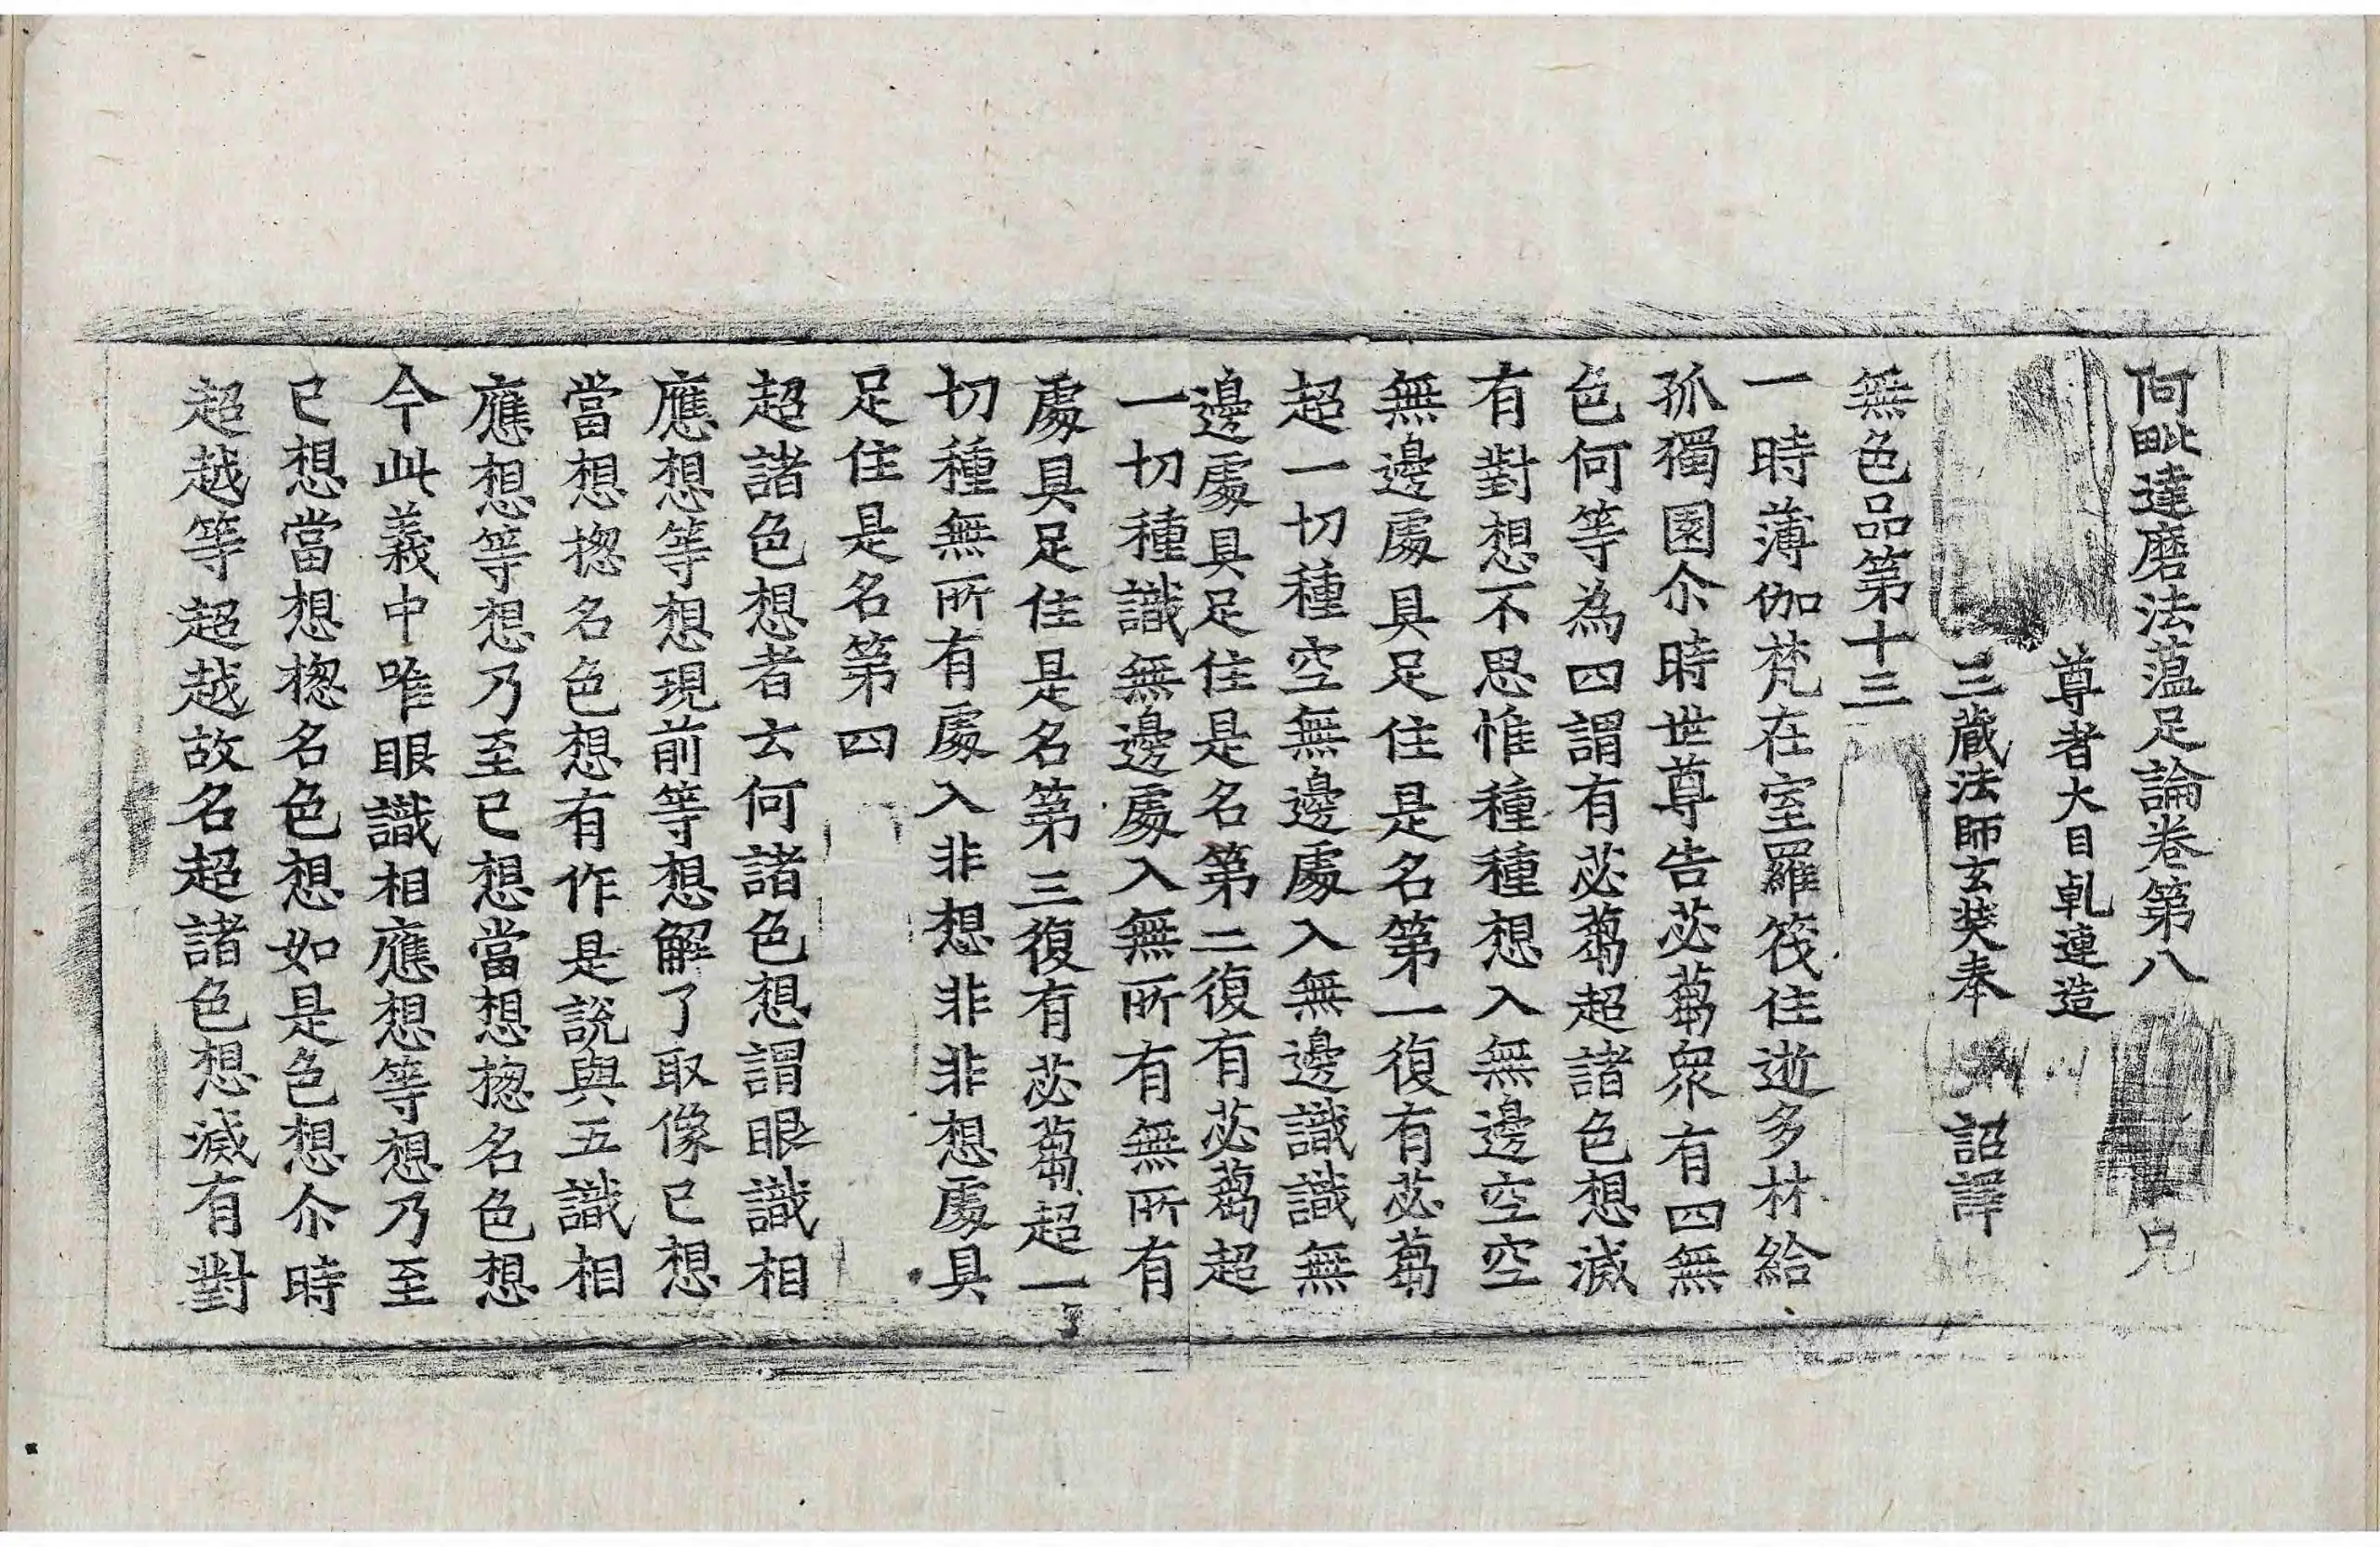 阿毗達磨法薀足論卷第八 兄
尊者大目乹連造
三藏法師玄奘奉 詔譯
無色品第十三
一時薄伽梵在室羅筏住逝多林給
孤獨園尒時世尊告苾蒭衆有四無
色何等為四謂有苾蒭超諸色想滅
有對想不思惟種種想入無邊空空
無邊處具足住是名第一復有苾蒭
超一切種空無邊處入無邊識識無
邊處具足住是名第二復有苾蒭超
一切種識無邊處入無所有無所有
處具足住是名第三復有苾蒭超一
切種無所有處入非想非非想處具
足住是名第四
超諸色想者云何諸色想謂眼識相
應想等想現前等想解了取像已想
當想揔名色想有作是說與五識相
應想等想乃至已想當想揔名色想
今此義中唯眼識相應想等想乃至
已想當想揔名色想如是色想尒時
超越等超越故名超諸色想滅有對